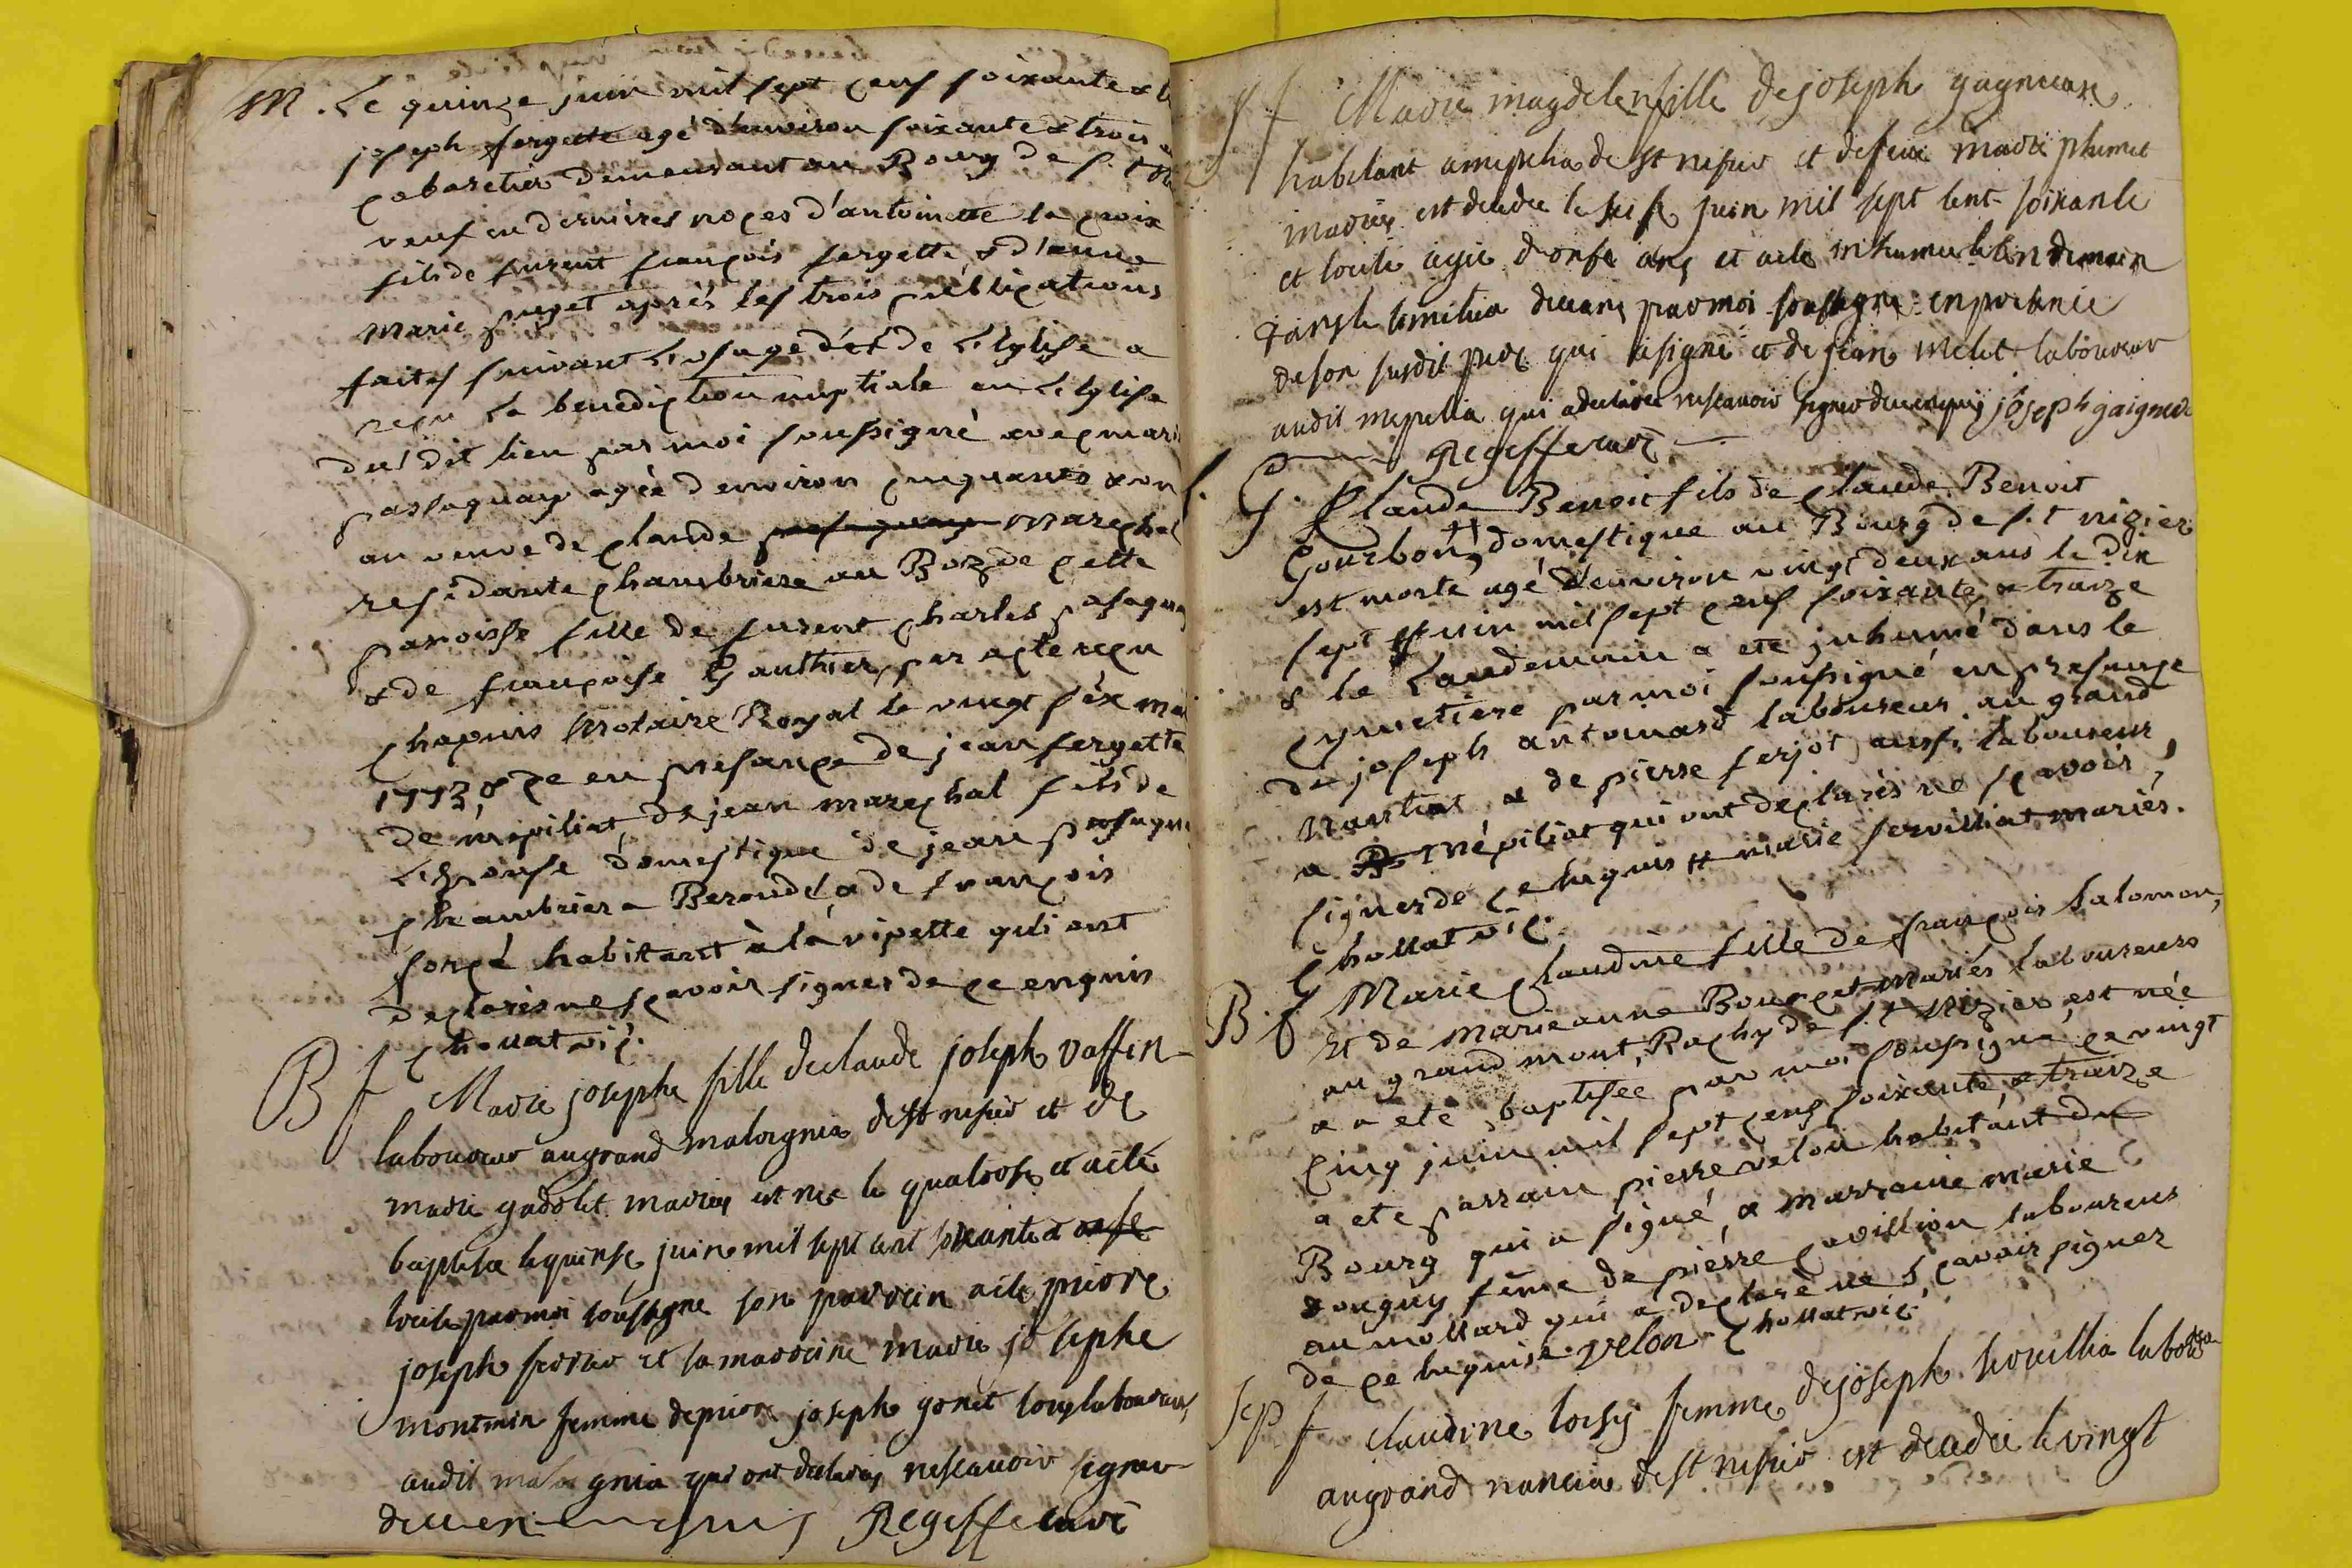 M. Le quinze juin mil sept cens soixante &
joseph fergette agé d'environ soixante & trois
cabaretier demeurant au Bourg de s.t
veuf en dernieres noces d'antoinette la croix
fils de furent françois fergette & d'anne
marie puget après les trois publications
faites suivant l'usage d'et de L'Eglise a
reçu la benediction nuptiale en L'Eglise
du dit lieu par moi soussigné avec mari
passaquay agée d'environ cinquante & on
an veuve de claude marechal
residante chambriere au Boz de cette
paroisse fille de furent charles pasaqu
& de françoise Gauthier, par acte reçu
chapuis Notaire Royal le vingt six mai
1773, & ce en presance de jean fergette
de mépiliat, de jean marechal fils de
L'Epouse domestique de jean pasaqu
chambrier a Beroude & de françois
forçé habitant à la ripette qui ont
declarès ne sçavoir signer de ce enquis
chollat vic.
B f Marie josephe fille de claude joseph vaffin
laboureur au grand malvignia de st nisier et de
marie gadolet mariés est nee le quatorse et a ete
baptisee le quinse juin mil sept cent soixante et onse
treise par moi soussigne son parrein a ete pierre
joseph ferrier et sa marreine marie josephe
montmin femme de pierre joseph gonet tous laboureurs
audit malvignia qui ont declarés ne scavoir signer
de ce enquis Regeffe curé
f Marie magdelen fille de joseph gagneure
habitant a mepelia de st nisier et de feue marie phumet
mariés est decedee le seise juin mil sept cent soixante
et treise agee d'onse ans et a ete inhumee le lendemain
dans le cimitiere deceans par moi soussigne en presence
de son susdit pere qui a signe et de jean melet laboureur
audit mepelia qui a declaree ne scavoir signer de ce enquis joseph gaigneur
Regeffe curé
S. f. Claude Benoit fils de claude Benoit
Gourbon, ++ domestique au Bourg de s.t nizier
est morte agé d'environ vingt deux ans le dix
sept juin mil sept cens soixante & traize
& le Landemain a eté inhumé dans le
cymetiere par moi soussigné en presance
de joseph antoinard laboureur au grand
Nantiat & de pierre ferjot aussi laboureur
a mépiliat qui ont declarès ne sçavoir
signer de ce enquis ++ marie servilliat mariés.
chollat vic.
B. f Marie claudine fille de françois Salomon,
Et de marieanne Bourcet mariés laboureurs
au grand mont, Rachy de s.t nizier, est née
& a eté baptisée par moi soussigné ce vingt
cinq juin mil sept cens soixante, & traize
a eté parrain pierre velon habitant du
Bourg qui a signé, & marraine marie
douguy feme de pierre cavillion laboureur
au mollard qui a declaré ne sçavoir signer
de ce enquise. velon chollat vic.
Sep f claudine loisy femme de joseph servillia laboureur
au grand nancia de st nisier est decedee le vingt